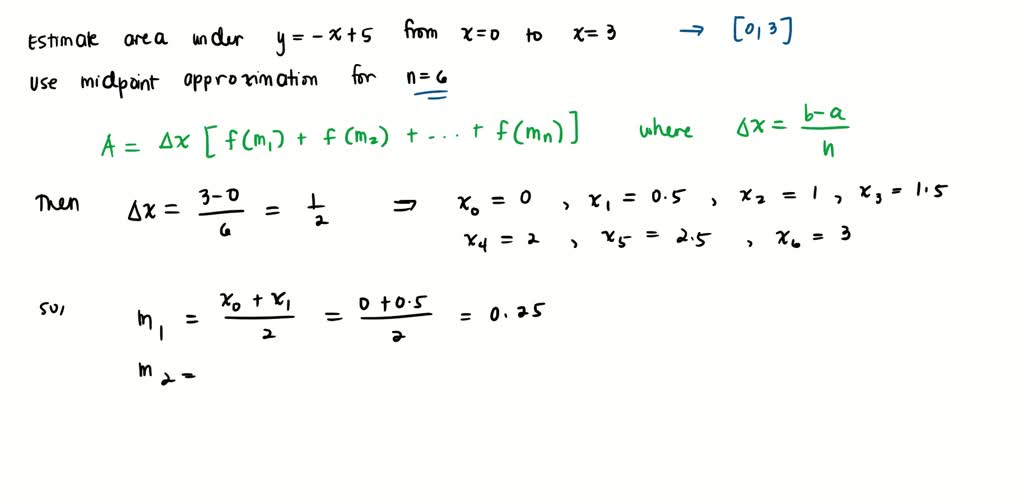 Estimate area under y = -x + 5 from x = 0 to x = 3 → [0, 3]
Use midpoint approximation for n = 6
A = Δx [f(m₁) + f(m₂) + ... + f(mn)] where Δx = b-a/n
Then Δx = 3-0/6 = 1/2 ⇒ x₀ = 0, x₁ = 0.5, x₂ = 1, x₃ = 1.5
x₄ = 2, x₅ = 2.5, x₆ = 3
So, m₁ = x₀ + x₁/2 = 0 + 0.5/2 = 0.25
m₂ =